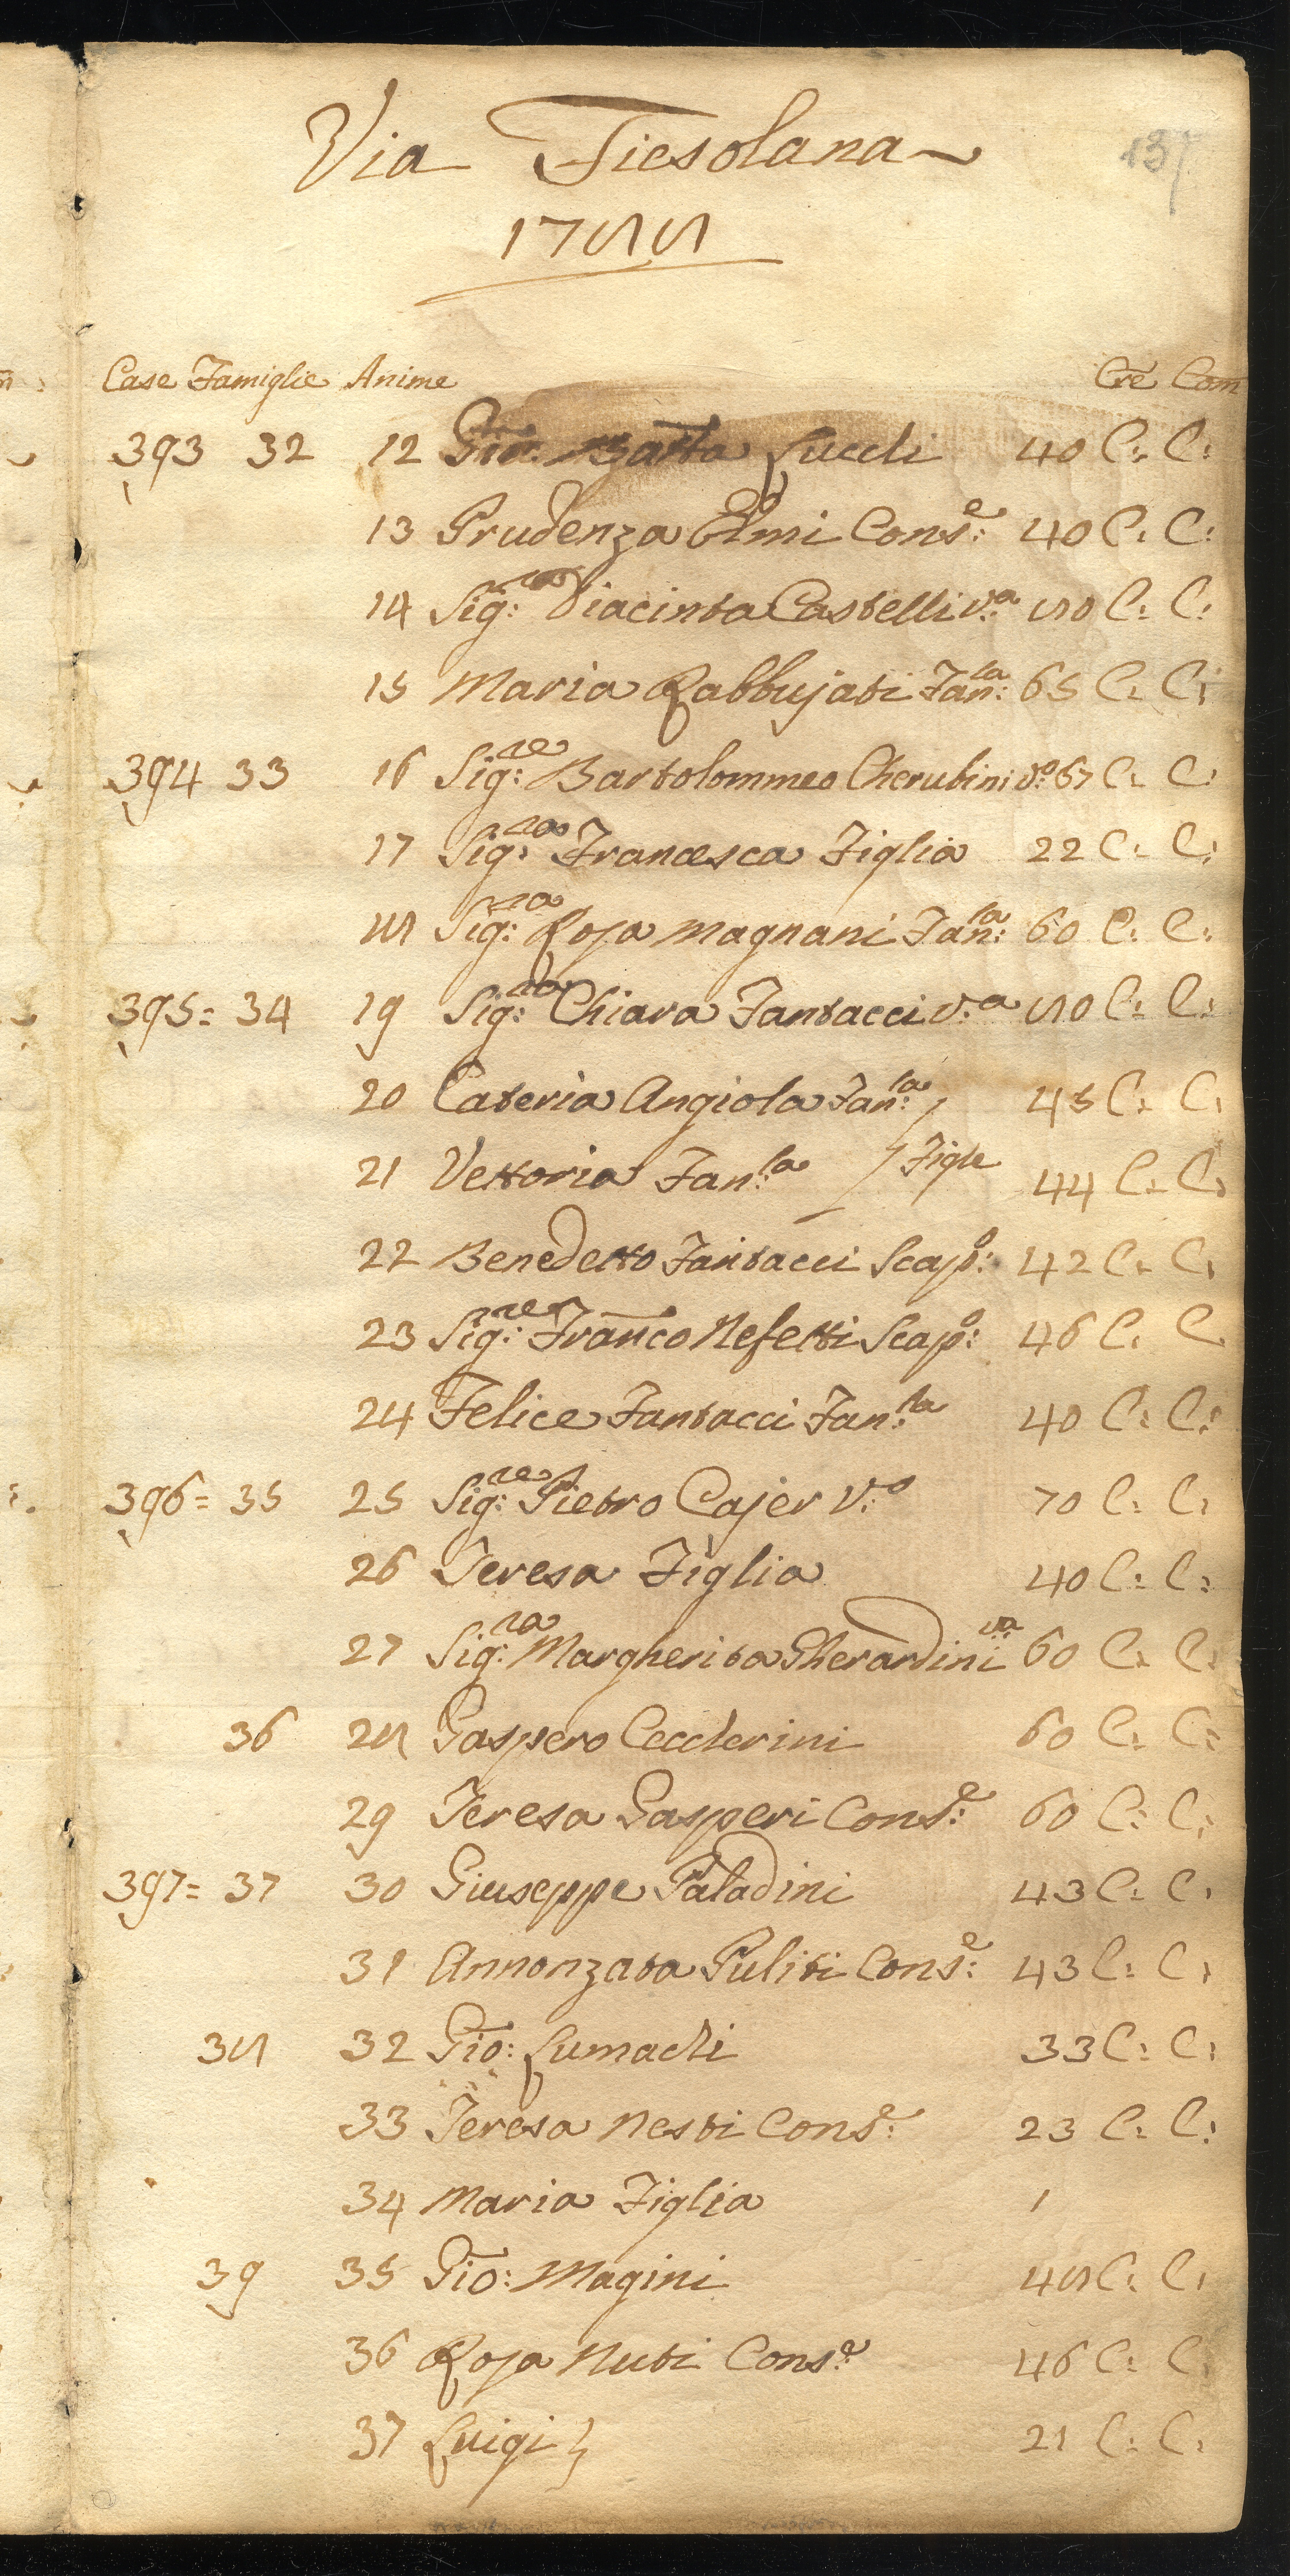 137
Via Fiesolana
1788
Case Famiglie Anime Cre Com
393 32 12 Gio: Batta Lucchi 40 C: C:
13 Prudenza Elmi Cons:e 40 C: C:
14 Sig:ra Diacinta Castelli v:a 80 C: C:
15 Maria Rabbujati Fan:la 65 C: C:
394 33 16 Sig:re Bartolommeo Cherubini v:o 67 C: C:
17 Sig:ra Francesca Figlia 22 C: C:
18 Sig:ra Rosa Magnani Fan:la 60 C: C:
395= 34 19 Sig:ra Chiara Fantacci v:a 80 C: C:
20 Cateria Angiola Fan:la 45 C: C:
21 Vettoria Fan:la } Figle 44 C: C:
22 Benedetto Fantacci Scap:o 42 C: C:
23 Sig:re Franco Nefetti Scap:o 46 C: C
24 Felice Fantacci Fan:la 40 C: C:
396= 35 25 Sig:re Pietro Cajer V:o 70 C: C:
26 Teresa Figlia 40 C: C:
27 Sig:ra Margherita Gherardini va 60 C: C:
36 28 Gaspero Ceccherini 60 C: C:
29 Teresa Gasperi Cons:e 60 C: C:
397= 37 30 Giuseppe Paladini 43 C: C:
31 Annonzata Puliti Cons:e 43 C: C:
38 32 Gio: Lumachi 33 C: C:
33 Teresa Nesti Cons:e 23 C: C:
34 Maria Figlia 1
39 35 Gio: Magini 48 C: C:
36 Rosa Nuti Cons:e 46 C: C:
37 Luigi } 21 C: C: